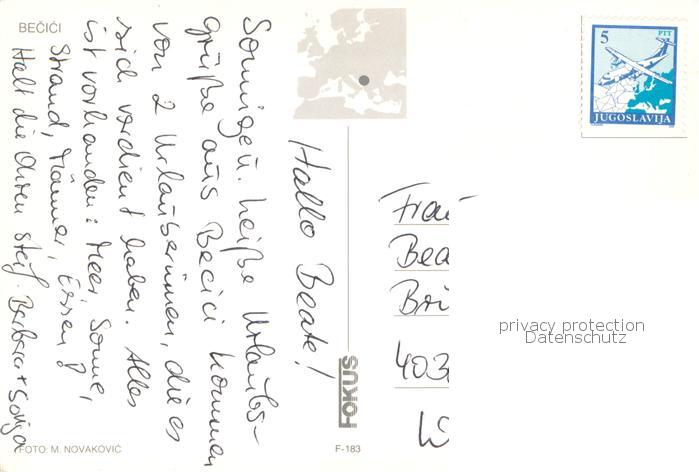 BEČIĆI
Hallo Beate!
Sonnige u. heiße Urlaubs-
grüße aus Becici kommen
von 2 Urlauberinnen, die es
sich verdient haben. Alles
ist vorhanden: Meer, Sonne,
Strand, Männer, Essen!
Halt die Ohren steif. Barbara + Sonja
FOTO: M. NOVAKOVIĆ
FOKUS
F-183
5 PTT
JUGOSLAVIJA
Frau
Bea
Bri
403
privacy protection
Datenschutz